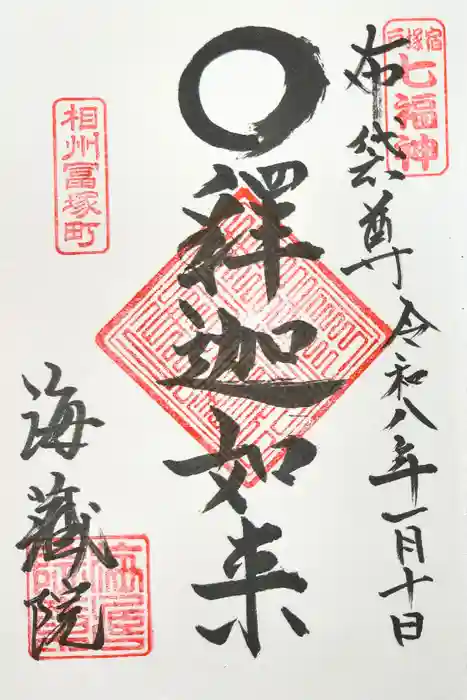 戸塚宿
七福神
布袋尊
令和八年一月十日
釋迦如来
相州冨塚町
海蔵院